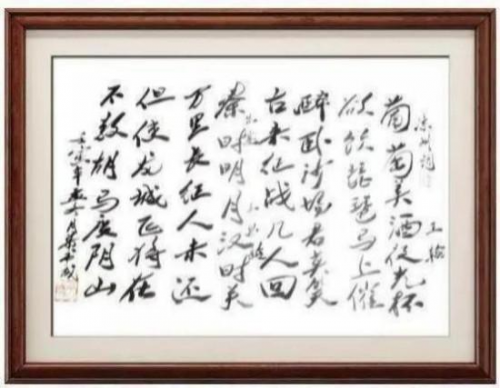 凉州词
王翰
葡萄美酒夜光杯
欲饮琵琶马上催
醉卧沙场君莫笑
古来征战几人回
出塞
秦时明月汉时关
万里长征人未还
但使龙城飞将在
不教胡马度阴山